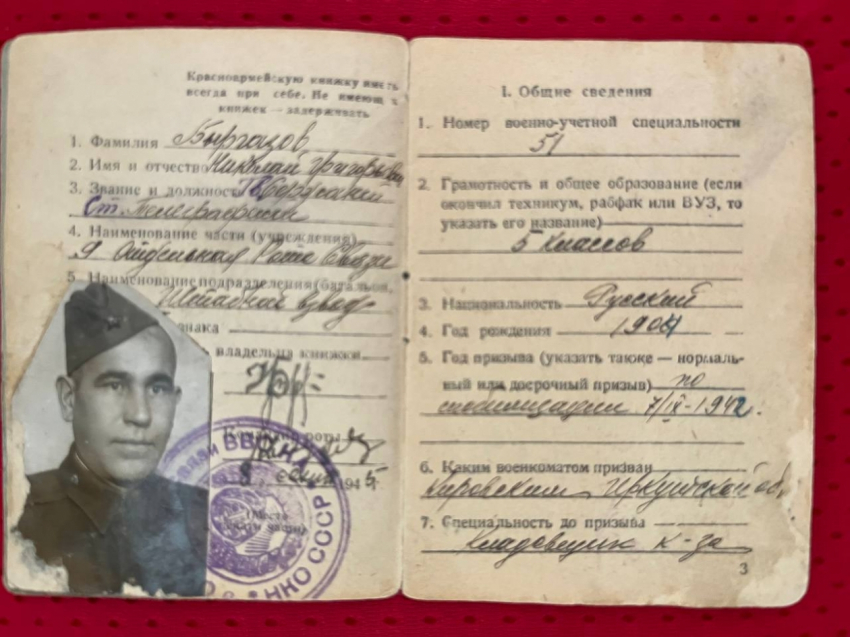 Красноармейскую книжку иметь
всегда при себе. Не имеющих
книжек — задерживать
1. Фамилия
2. Имя и отчество Николай Григорьевич
3. Звание и должность
Ст. Телеграфист
4. Наименование части (учреждения)
9 Отдельная Рота Связи
5 Наименование подразделения (батальон,
Штабной взвод
знака
владельца книжки
Командир роты
8 1945
(Место
НКО СССР
I. Общие сведения
1. Номер военно-учетной специальности
51
2. Грамотность и общее образование (если
окончил техникум, рабфак или ВУЗ, то
указать его название)
5 классов
3. Национальность Русский
4. Год рождения 1904
5. Год призыва (указать также — нормаль-
ный или досрочный призыв) по
мобилизации 7/IX-1942.
6. Каким военкоматом призван
Кировским Иркутской об.
7. Специальность до призыва
Кладовщик к-за
3